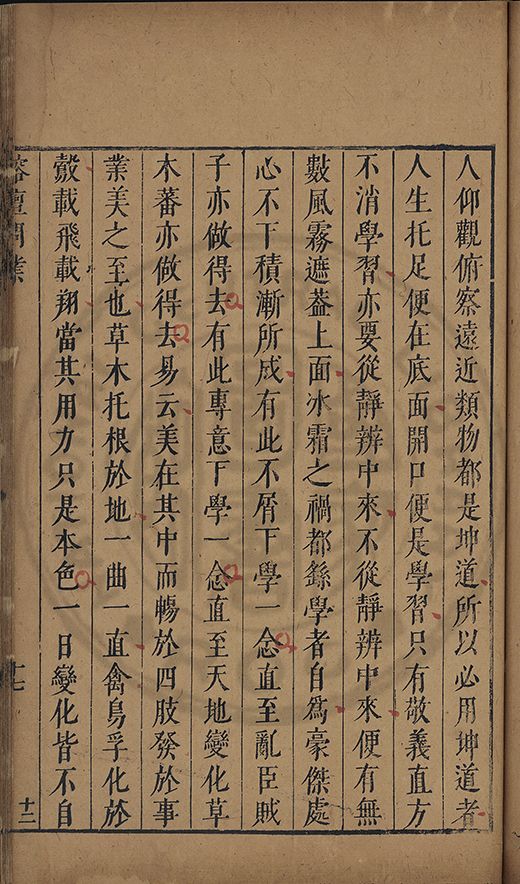 人仰觀俯察遠近類物都是坤道所以必用坤道者
人生托足便在底面開口便是學習只有敬義直方
不消學習亦要從靜辨中來不從靜辨中來便有無
數風霧遮葢上面冰霜之禍都繇學者自為豪傑處
心不下積漸所成有此不屑下學一念直至亂臣賊
子亦做得去有此專意下學一念直至天地變化草
木蕃亦做得去易云美在其中而暢於四肢發於事
業美之至也草木托根於地一曲一直禽鳥孚化於
鷇載飛載翔當其用力只是本色一日變化皆不自
榕壇問業
十二